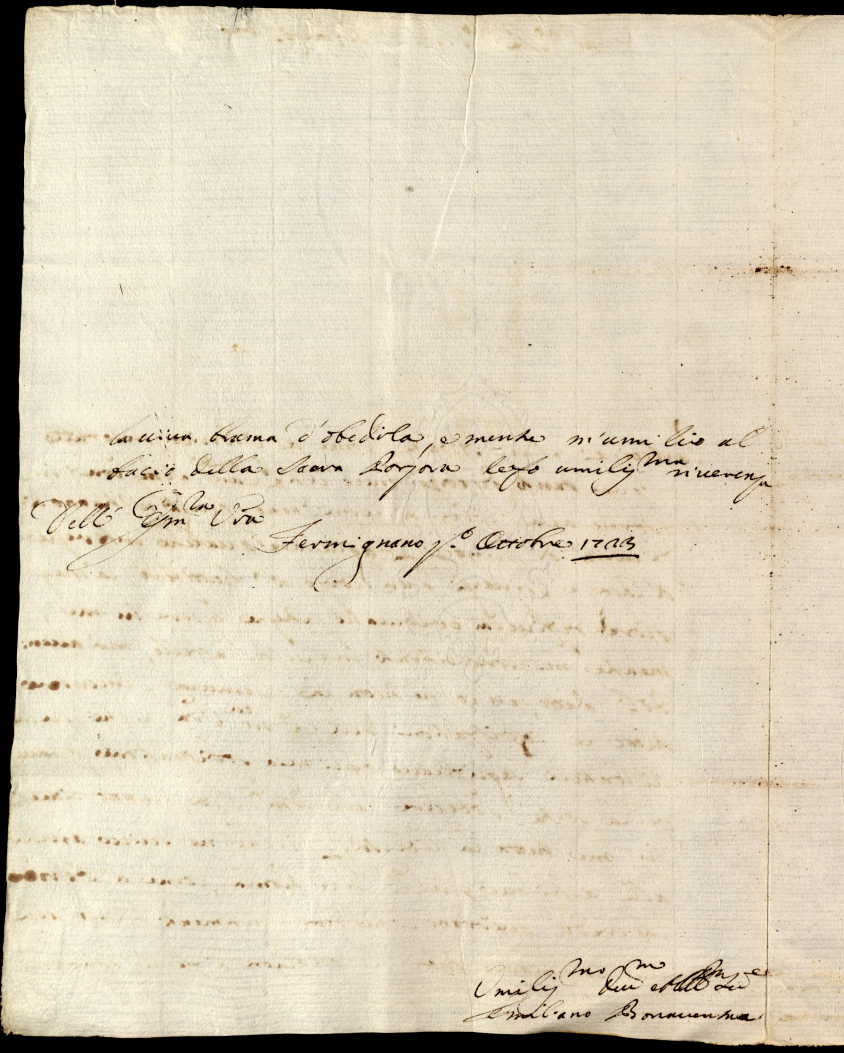 la viva brama d'obedirla, e mentre m'umilio al
bacio della Sacra Porpora resto umiliss.ma riverenza
Dell' Em.za Vra
Fermignano p.o Ottobre 1723
Umiliss.mo Dev.mo et Obl.mo Ser.e
Emiliano Bonaventura